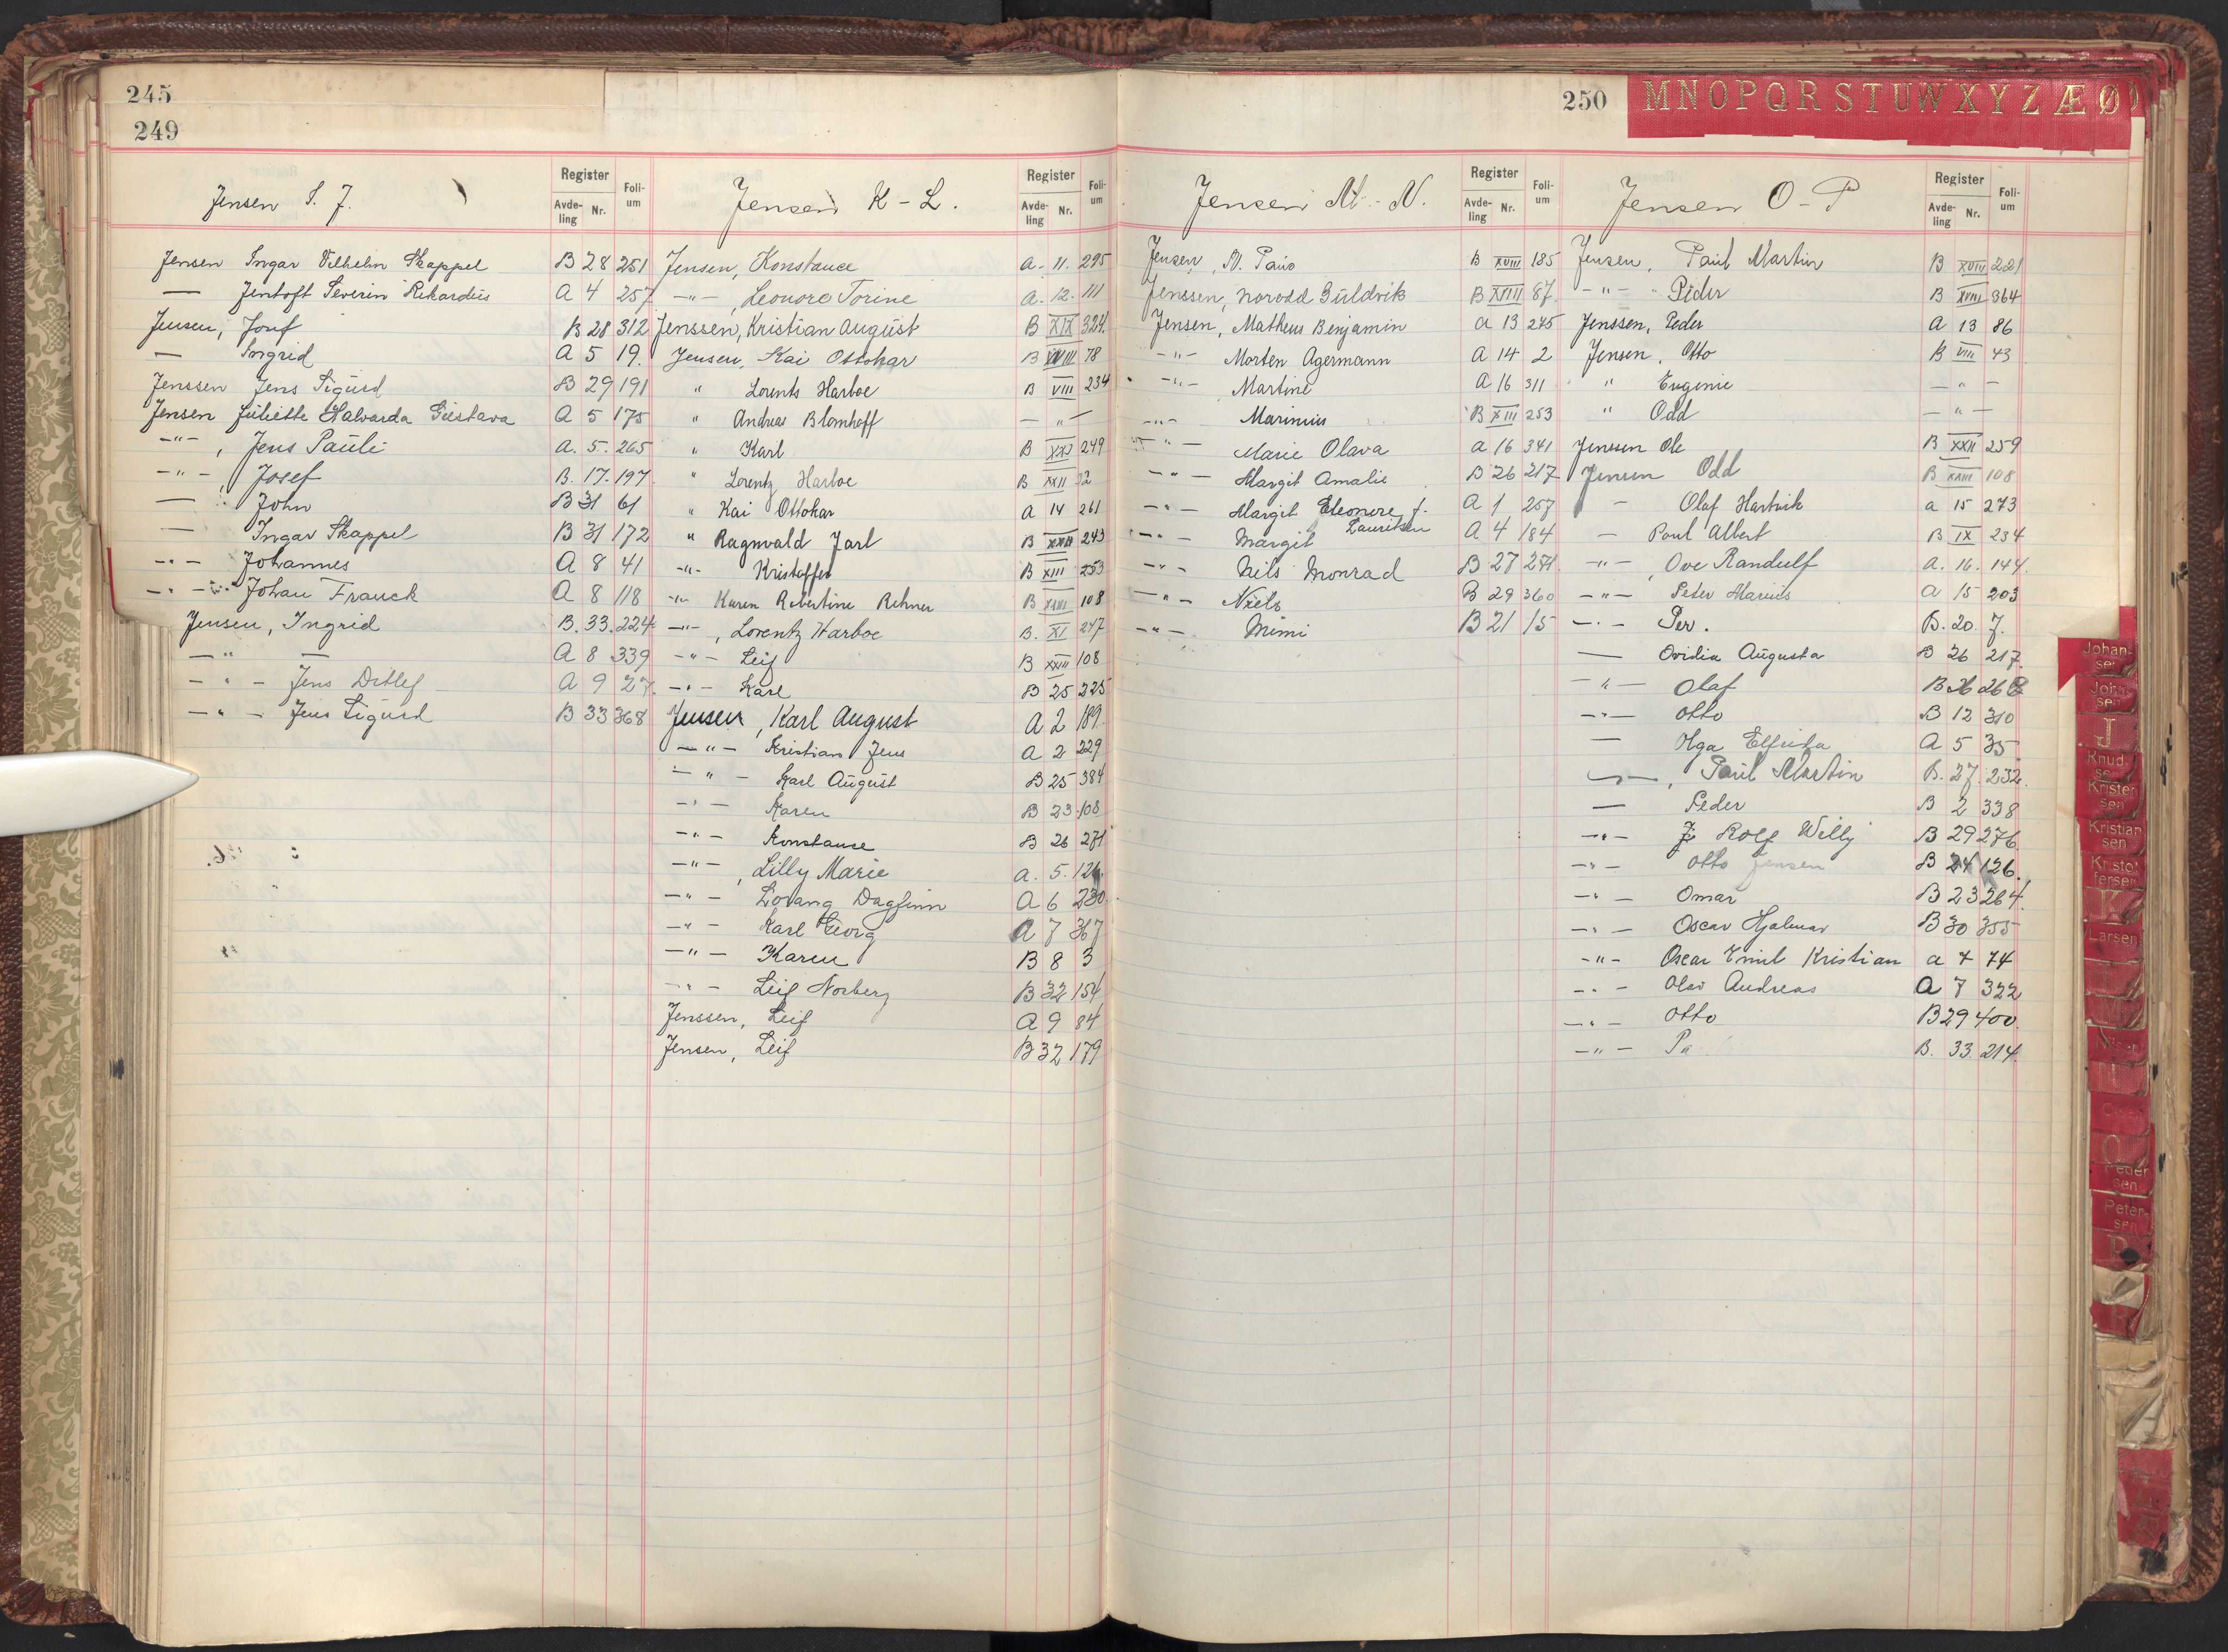 245
249
Jensen I. J.
Register
Avde-ling Nr.
Foli-um
Jensen Ingar Vilhelm Skappel B 28 251
— Jentoft Severin Rikardus A 4 257
Jensen, Josef B 28 312
— Ingrid A 5 19.
Jenssen Jens Sigurd B 29 191
Jensen Juliette Halvarda Gustava A 5 175
-"- , Jens Pauli A. 5. 265
-"- , Josef B. 17. 197.
— John B 31 61
— Ingar Skappel B 31 172
-"- Johannes A 8 41
-"- Johan Franck A 8 118
Jensen, Ingrid B. 33. 224
-"- — A 8 339
-"- Jens Ditlef A 9 27.
-"- Jens Sigurd B 33 368
Jensen K - L.
Register
Avde-ling Nr.
Foli-um
Jensen, Konstance A. 11. 295
-"-, Leonore Torine A. 12. 111
Jenssen, Kristian August B XIX 324
Jensen, Kai Ottokar B XVIII 78
" Lorents Harboe B VIII 234
" Andreas Blomhoff — " —
" Karl B XXI 249
" Lorentz Harboe B XXII 32
" Kai Ottokar A 14 261
" Ragnvald Jarl B XXII 243
-"- Kristoffer B XIII 253
-"- Karen Robertine Rehner B XXIII 108
-"-, Lorentz Harboe B. XI 247
-"- Leif B XXIII 108
-"- Karl B 25 225
Jensen, Karl August A 2 189
-"- Kristian Jens A 2 229
-"- Karl August B 25 384
-"- Karen B 23 108
-"- Konstance B 26 271
-"- , Lilly Marie A. 5. 126
-"- Lovang Dagfinn A 6 230
-"- Karl Georg A 7 367
-"- Karen B 8 3
-"- Leif Norberg B 32 154
Jenssen, Leif A 9 84
Jensen, Leif B 32 179
250
MNOPQRSTUWXYZÆØ
Jensen M - N.
Register
Avde-ling Nr.
Foli-um
Jensen, M. Paus B XVIII 185
Jenssen, Norodd Guldvik B XVIII 87.
Jensen, Matheus Benjamin A 13 245
-"- Morten Agermann A 14 2
-"- Martine A 16 311
-"- Marinius B XIII 253
-"- Marie Olava A 16 341
-"- Margit Amalie B 26 217
-"- Margit Eleonore f. A 1 257
Lauritsen
-"- Margit A 4 184
-"- Nils Monrad B 27 271.
-"- Niels B 29 360
-"- Mimi B 21 15
Jensen O - P
Register
Avde-ling Nr.
Foli-um
Jensen, Paul Martin B XVIII 221
-"- " Peder B XVIII 364
Jenssen, Peder A 13 86
Jensen, Otto B VIII 43
" Eugenie — " —
" Odd — " —
Jenssen Ole B XXII 259
Jensen Odd B XXIII 108
- Olaf Hartvik A 15 273
— Paul Albert B IX 234
-"- , Ove Randulf A. 16. 144.
-"- Peter Marius A 15 203
-"- Per. B. 20. 7.
— Ovidia Augusta B 26 217.
-"- Olaf B 26 268
-"- Otto B 12 310
— Olga Elfrida A 5 35
— , Paul Martin B. 27. 232.
— Peder B 2 338
-"- Rolf Willy B 29 276
-"- Otto Jensen B 24 126.
-"- Omar B 23 264.
-"- Oscar Hjalmar B 30 355
-"- Oscar Emil Kristian A 7 74
-"- Olav Andreas A 7 322
-"- Otto B 29 400.
-"- B. 33. 214.
Johan-sen
J
Knud-sen
Kristen-sen
Kristian sen
Kristof-fersen
K
Larsen
Peder sen
Peter-sen
P